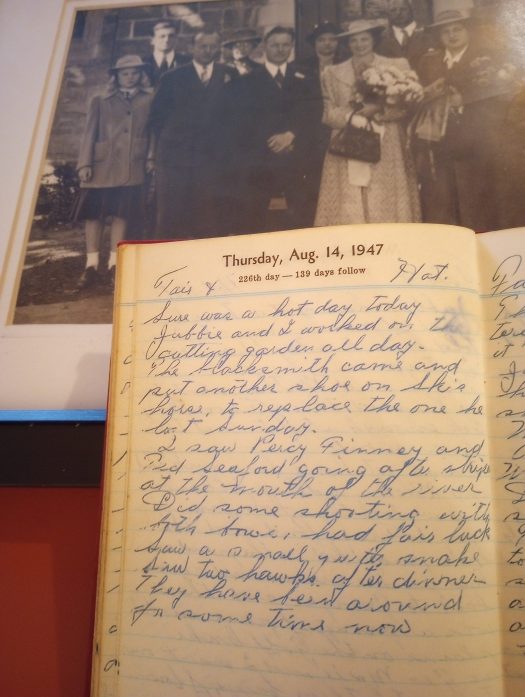 Thursday, Aug. 14, 1947
226th day — 139 days follow
Fair & Hot.
Sure was a hot day today
and I worked on the
cutting garden all day.
The blacksmith came and
put another shoe on
horse, to replace the one he
lost Sunday.
I saw Percy Finney and
Ted Seaford going after stripe
at the mouth of the river
Did some shooting with
bow, had fair luck
saw a small, snake
saw two hawks after dinner
They have been around
for some time now